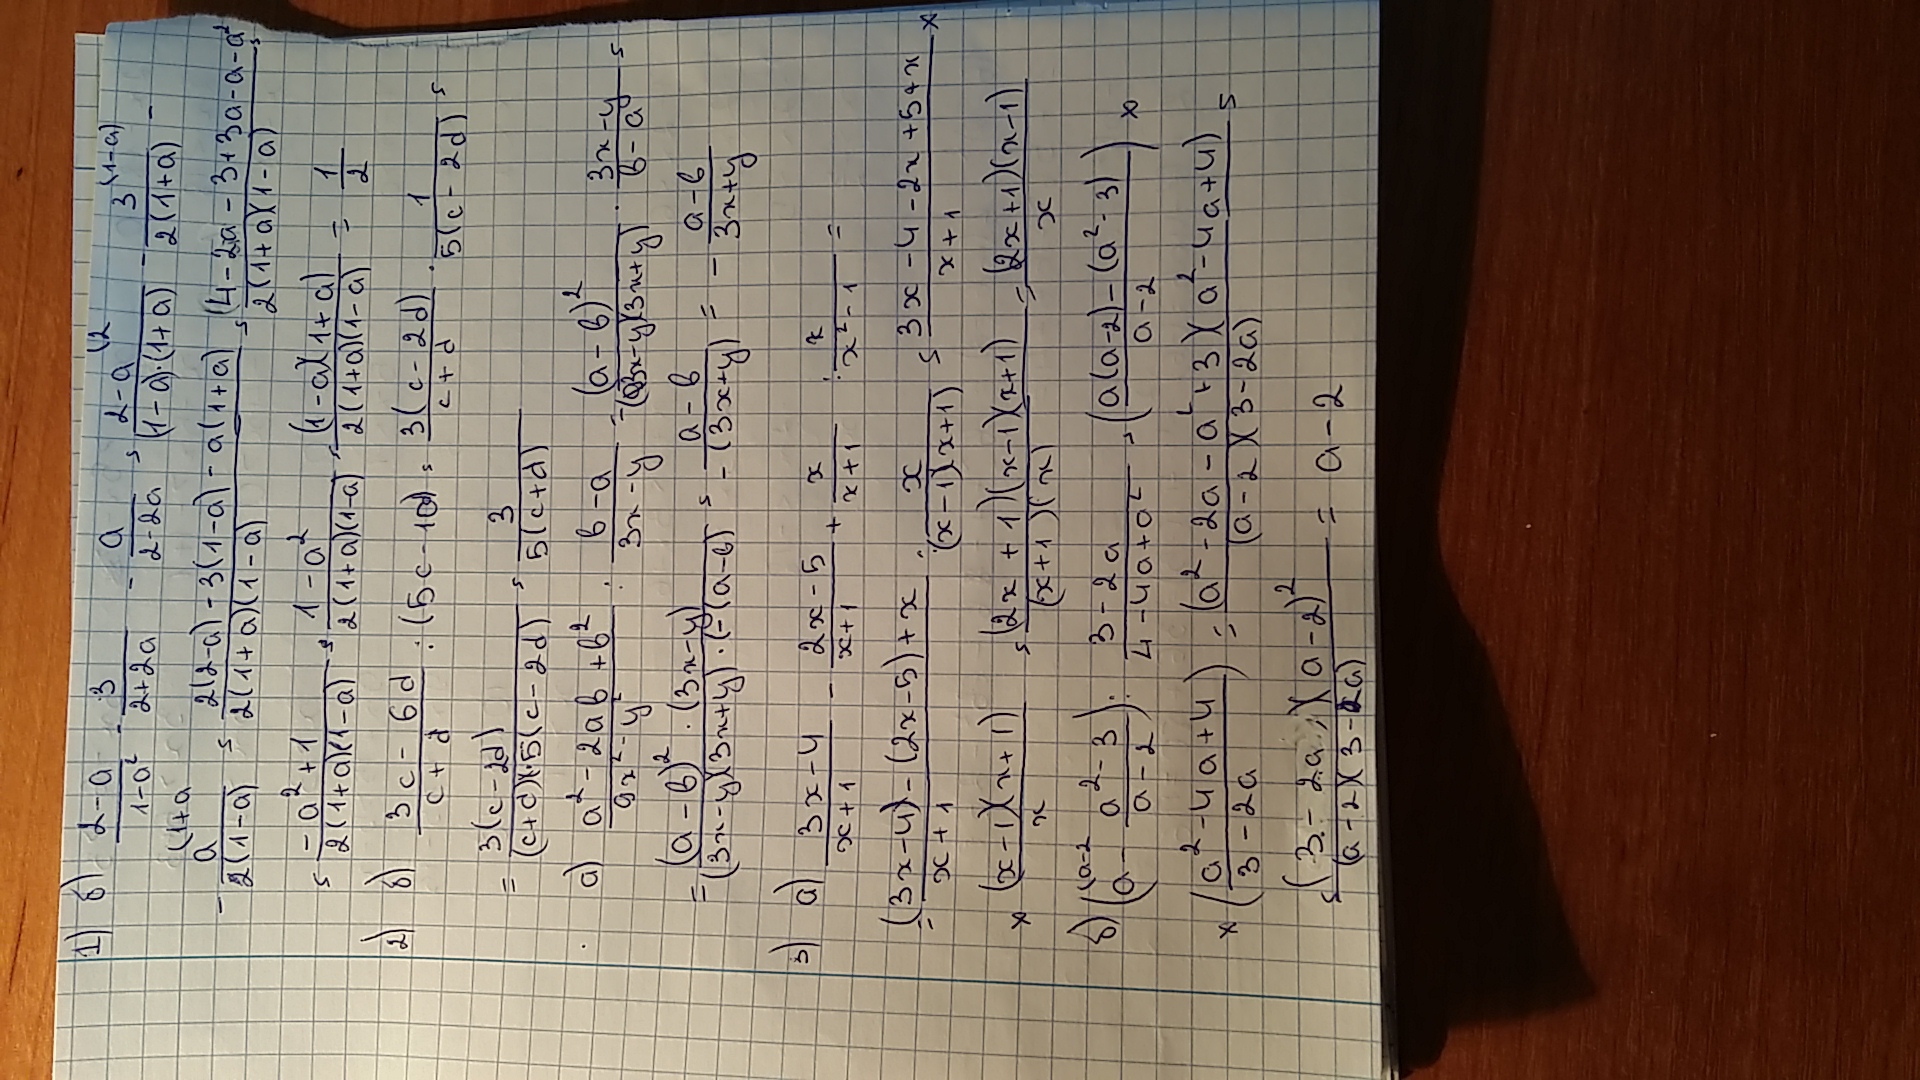 1) б) (2-a)/(1-a²) - 3/(2+2a) - a/(2-2a) = (2-a)/((1-a)·(1+a)) (2 - 3/(2(1+a)) (1-a) -
- a/(2(1-a)) (1+a = (2(2-a)-3(1-a)-a(1+a))/(2(1+a)(1-a)) = (4-2a-3+3a-a-a²)/(2(1+a)(1-a)) =
= (-a²+1)/(2(1+a)(1-a)) = (1-a²)/(2(1+a)(1-a)) = ((1-a)(1+a))/(2(1+a)(1-a)) = 1/2
2) б) (3c-6d)/(c+d) : (5c-10d) = (3(c-2d))/(c+d) · 1/(5(c-2d)) =
= (3(c-2d))/((c+d)·5(c-2d)) = 3/(5(c+d))
a) (a²-2ab+b²)/(9x²-y²) : (b-a)/(3x-y) = (a-b)²/((3x-y)(3x+y)) · (3x-y)/(b-a) =
= ((a-b)²·(3x-y))/((3x-y)(3x+y)·(-(a-b)) = - (a-b)/(3x+y) = - (a-b)/(3x+y)
3) a) (3x-4)/(x+1) - (2x-5)/(x+1) + x/(x+1) : x/(x²-1) =
= ((3x-4)-(2x-5)+x)/(x+1) : x/((x-1)(x+1)) = (3x-4-2x+5+x)/(x+1) ×
× ((x-1)(x+1))/x = ((2x+1)(x-1)(x+1))/((x+1)(x)) = ((2x+1)(x-1))/x
б) (a (a-2 - (a²-3)/(a-2)) : (3-2a)/(4-4a+a²) = ((a(a-2)-(a²-3))/(a-2)) ×
× ((a²-4a+4)/(3-2a)) = ((a²-2a-a²+3)(a²-4a+4))/((a-2)(3-2a)) =
= ((3-2a)(a-2)²)/((a-2)(3-2a)) = a-2